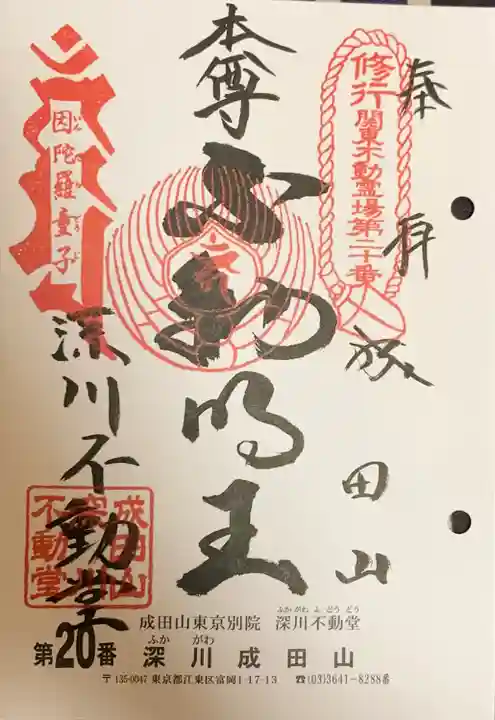 奉拝
成田山
修行関東不動霊場第二十番
本尊
不動明王
因陀羅童子
いんだらどうじ
深川不動堂
成田山
深川
不動堂
成田山東京別院 深川不動堂
ふか がわ ふ どう どう
第20番 深川成田山
ふか がわ
〒135-0047 東京都江東区富岡1-17-13 ☎(03)3641-8288番